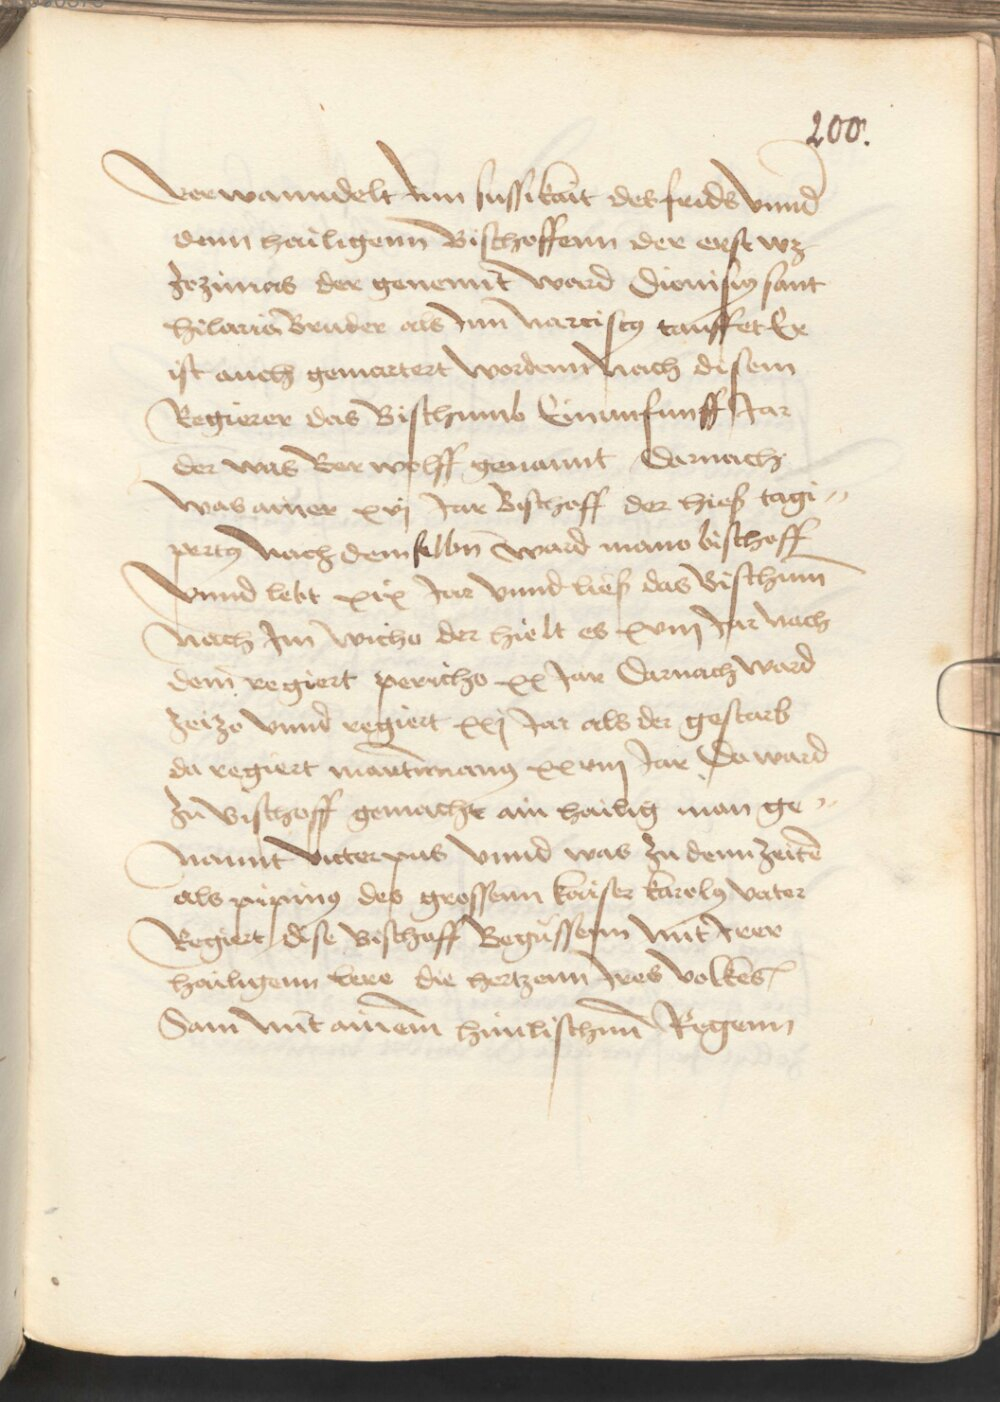 200.
verwanndelt Inn sussikait des frids vnnd
denn hailigenn Bischoffenn der erst wz
Zozimas der genennt ward Dionisius sant
hilaria Bruder als Inn Narciscus tauffet Er
ist auch gemartert wordenn Nach disem
Regierer das Bisthumb Ainunfunff Jar
der was Ber wolff genannt Darnach
was ainer xvj Jar Bischoff der hieß tagi-
pertus Nach dem selbn ward mano bischoff
vnnd lebt xix Jar vnnd ließ das Bisthum
Nach Im wicho der hielt es xviij Jar Nach
dem regiert pericho xx Jar Darnach ward
Zeizo vnnd regiert xxj Jar als der gestarb
da regiert martimanus xxviij Jar Da ward
Zu Bischoff gemacht ain hailig man ge-
nannt victerpus vnnd was Zu denn Zeite
als pipinus des grossenn kaiser karolus vater
Regiert dise Bischoff Begussenn mit Irer
hailigenn lere die hertzenn Ires volkes
Sam mit ainem himlischem Regenn